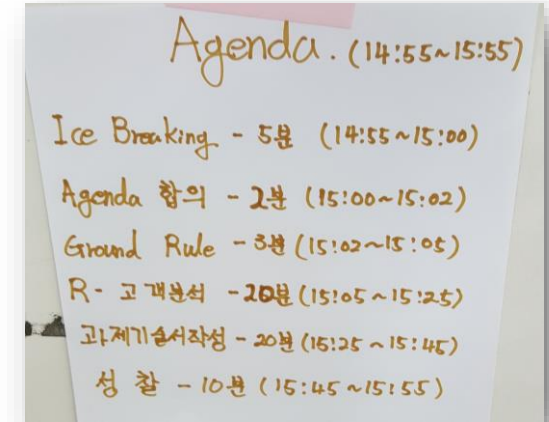 Agenda. (14:55~15:55)
Ice Breaking - 5분 (14:55~15:00)
Agenda 합의 - 2분 (15:00~15:02)
Ground Rule - 3분 (15:02~15:05)
R- 고객분석 - 20분 (15:05~15:25)
과제기술서작성 - 20분 (15:25~15:45)
성찰 - 10분 (15:45~15:55)